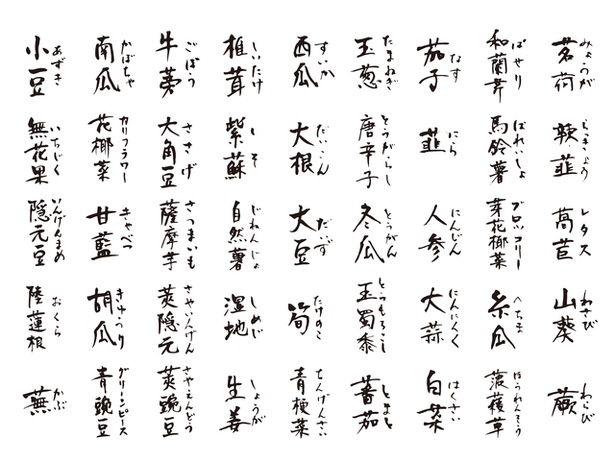 小豆 あずき
無花果 いちじく
隠元豆 いんげんまめ
陸蓮根 おくら
蕪 かぶ
南瓜 かぼちゃ
花椰菜 カリフラワー
甘藍 きゃべつ
胡瓜 きゅうり
青豌豆 グリーンピース
牛蒡 ごぼう
大角豆 ささげ
薩摩芋 さつまいも
莢隠元 さやいんげん
莢豌豆 さやえんどう
椎茸 しいたけ
紫蘇 しそ
自然薯 じねんじょ
湿地 しめじ
生姜 しょうが
西瓜 すいか
大根 だいこん
大豆 だいず
筍 たけのこ
青梗菜 ちんげんさい
玉葱 たまねぎ
唐辛子 とうがらし
冬瓜 とうがん
玉蜀黍 とうもろこし
蕃茄 とまと
茄子 なす
韮 にら
人参 にんじん
大蒜 にんにく
白菜 はくさい
和蘭芹 ぱせり
馬鈴薯 ばれいしょ
芽花椰菜 ブロッコリー
糸瓜 へちま
菠薐草 ほうれんそう
茗荷 みょうが
辣韮 らっきょう
萵苣 レタス
山葵 わさび
蕨 わらび